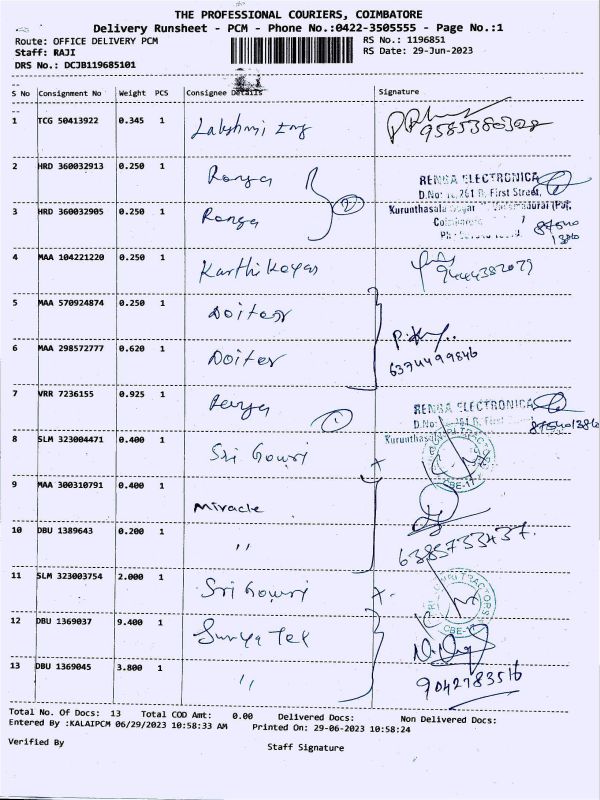 THE PROFESSIONAL COURIERS, COIMBATORE
Delivery Runsheet - PCM - Phone No.:0422-3505555 - Page No.:1
Route: OFFICE DELIVERY PCM
RS No.: 1196851
Staff: RAJI
RS Date: 29-Jun-2023
DRS No.: DCJB119685101
S No Consignment No Weight PCS Consignee Details Signature
1 TCG 50413922 0.345 1 Lakshmi Eng
9585380328
2 HRD 360032913 0.250 1 Renga
RENGA ELECTRONICA
First Street,
3 HRD 360032905 0.250 1 Renga 2
Coimbatore
4 MAA 104221220 0.250 1 Karthikeyan
9444382079
5 MAA 570924874 0.250 1 Doitor
6 MAA 298572777 0.620 1 Doitor
6374499846
7 VRR 7236155 0.925 1 Renga 1
RENGA ELECTRONICA
8 SLM 323004471 0.400 1 Sri Gowri
CBE-17
9 MAA 300310791 0.400 1 Miracle
10 DBU 1389643 0.200 1 "
6385733437.
11 SLM 323003754 2.000 1 Sri Gowri
12 DBU 1369037 9.400 1 Surya Tel
13 DBU 1369045 3.800 1 "
9042783516
Total No. Of Docs: 13 Total COD Amt: 0.00 Delivered Docs: Non Delivered Docs:
Entered By :KALAIPCM 06/29/2023 10:58:33 AM Printed On: 29-06-2023 10:58:24
Verified By
Staff Signature